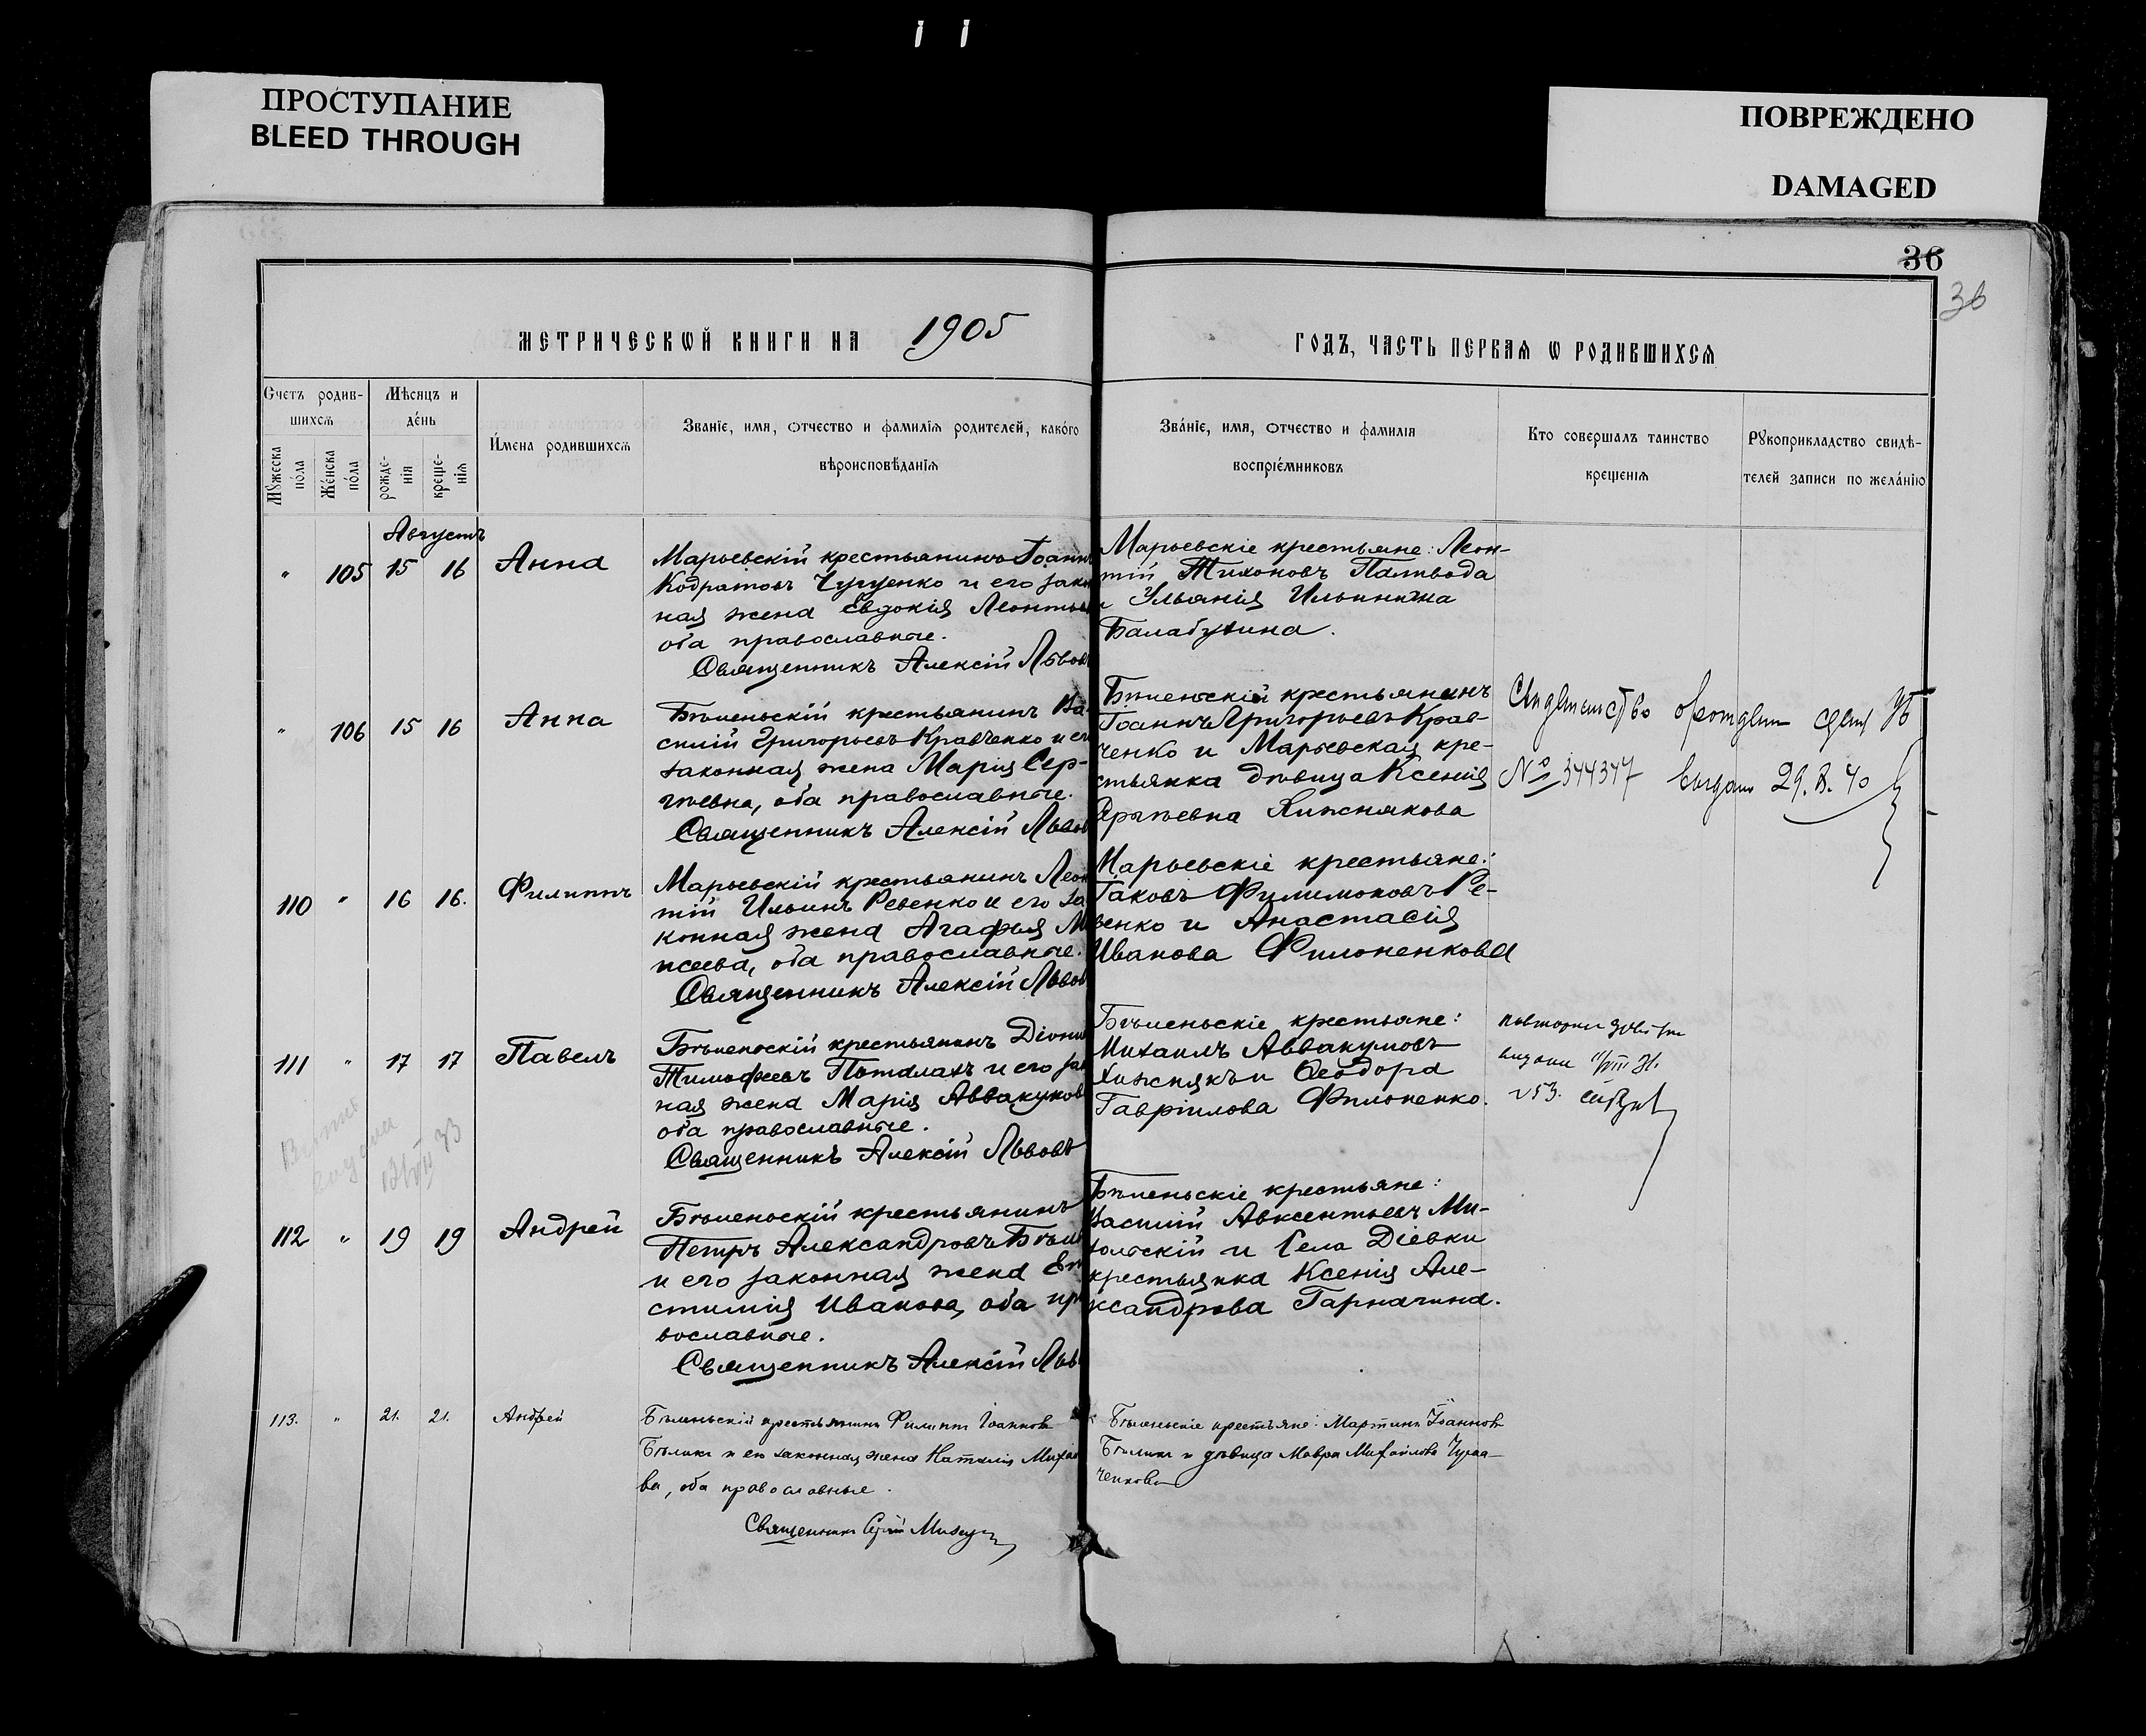 ПРОСТУПАНИЕ
BLEED THROUGH
ПОВРЕЖДЕНО
DAMAGED
36
36
МЕТРИЧЕСКѠЙ КНИГИ НА 1905
ГОДЪ, ЧАСТЬ ПЕРВАѦ Ѡ РОДИВШИХСѦ
Счетъ родив-
шихсѧ
Мѣсяцъ и
де́нь
Мꙋжеска по́ла
Же́нска по́ла
рожде-
нія
креще-
нїѧ
И́мена родившихсѧ
Званїе, имя, ѻтчество и фамилїѧ родителей, како́го
вѣроисповѣ́данїѧ
Зва́нїе, имя, ѻтчество и фамилїя
воспрїе́мниковъ
Кто совершалъ таинство
крещенїѧ
Рꙋкоприкладство свидѣ-
телей записи по жела́нїю
Августъ
" 105 15 16 Анна
Марьевскій крестьянинъ Іоаннъ
Кодратовъ Чугуенко и его закон
ная жена Евдокія Леонтьев
оба православные.
Священникъ Алексій Львовъ
Марьевскіе крестьяне: Леон-
тій Тихоновъ Паливода
и Ульянія Ильинична
Балабухина.
" 106 15 16 Анна
Бѣленьскій крестьянинъ Ва-
силій Григорьевъ Кравченко и его
законная жена Марія Сер-
гѣевна, оба православные.
Священникъ Алексій Львов
Бѣленьскій крестьянинъ
Іоаннъ Григорьевъ Крав-
ченко и Марьевская кре-
стьянка дѣвица Ксенія
Хижнякова
№ 344347 29. 40
110 " 16 16. Филиппъ
Марьевскій крестьянинъ Леон
тій Ильинъ Ревенко и его за
конная жена Агафья М
исеева, оба православные.
Священникъ Алексій Львов
Марьевскіе крестьяне:
Іаковъ Филимоновъ Ре-
венко и Анастасія
Иванова Филоненкова
111 " 17 17 Павелъ
Бѣленьскій крестьянинъ Діони
Тимофеевъ Поталахъ и его зак
ная жена Марія Аввакумов
оба православные.
Священникъ Алексій Львовъ
Бѣленьскіе крестьяне:
Михаилъ Аввакумовъ
Хижнякъ и Ѳеодора
Гавріилова Филоненко.
112 " 19 19 Андрей
Бѣленьскій крестьянинъ
Петръ Александровъ Бѣли
и его законная жена Еп
стимія Иванова, оба пра
вославные.
Священникъ Алексій Льв
Бѣленьскіе крестьяне:
Василій Авксентьевъ Ми-
и Села Діевки
крестьянка Ксенія Але-
ксандрова Гарначина.
113. " 21. 21. Андрей
Бѣленьскій крестьянинъ Филиппъ Іоанновъ
Бѣликъ и его законная жена Наталія Михаи
ва, оба православные.
Священникъ Сергій
Бѣленьскіе крестьяне: Мартинъ Іоанновъ
Бѣликъ и дѣвица Мавра Михайлова
ченкова